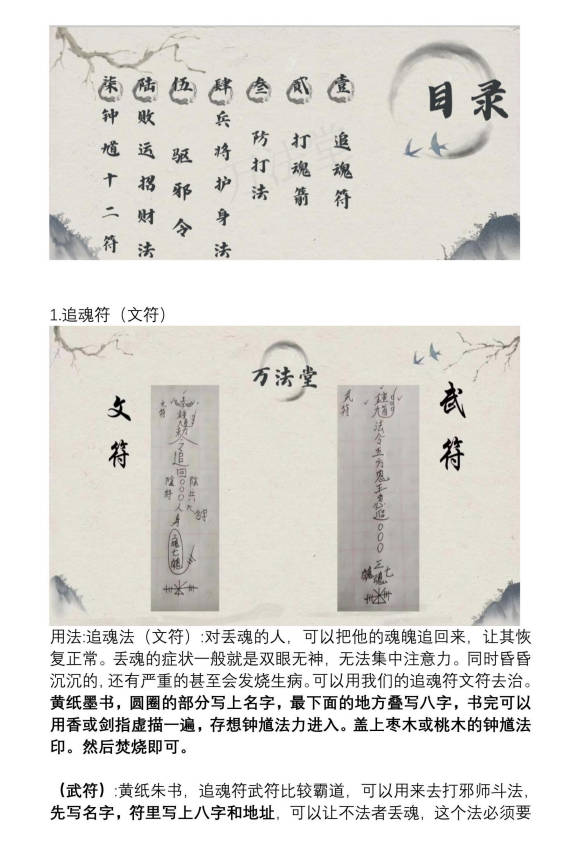 目录
壹 追魂符
贰 打魂箭
叁 防打法
肆 兵将护身法
伍 驱邪令
陆 败运招财法
柒 钟馗十二符
万法堂
1.追魂符（文符）
万法堂
文符
武符
文符
追回000人
三魂七魄
武符
法令五方鬼王急追000
三魂七魄
用法:追魂法（文符）:对丢魂的人，可以把他的魂魄追回来，让其恢
复正常。丢魂的症状一般就是双眼无神，无法集中注意力。同时昏昏
沉沉的, 还有严重的甚至会发烧生病。可以用我们的追魂符文符去治。
黄纸墨书，圆圈的部分写上名字，最下面的地方叠写八字，书完可以
用香或剑指虚描一遍，存想钟馗法力进入。盖上枣木或桃木的钟馗法
印。然后焚烧即可。
（武符）:黄纸朱书，追魂符武符比较霸道，可以用来去打邪师斗法，
先写名字，符里写上八字和地址，可以让不法者丢魂，这个法必须要